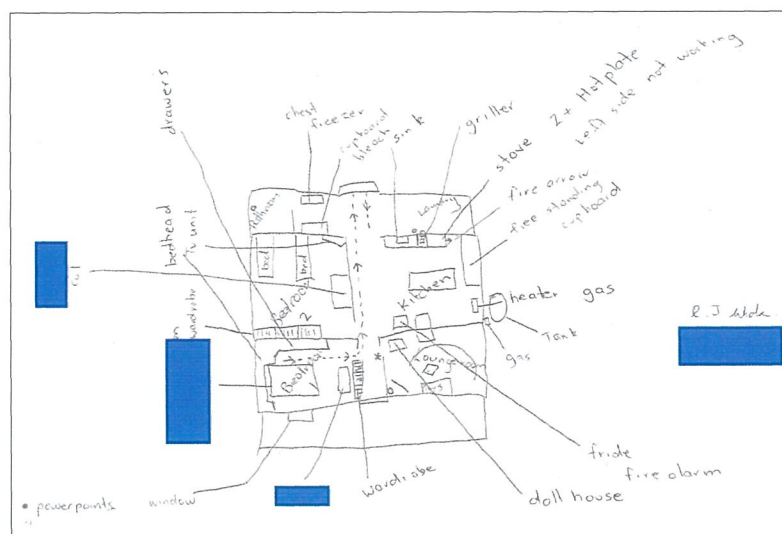 drawers
chest
freezer
cupboard
bleach
sink
griller
stove 2+ Hotplate
Left side not working
fire arrow
free standing
cupboard
bedhead
Tv unit
Bathroom
Laundry
bed
bed
Bedroom
2
Kitchen
heater gas
Tank
gas
wardrobe
Bedroom
1
Lounge room
fride
fire alarm
doll house
wardrobe
window
• powerpoints